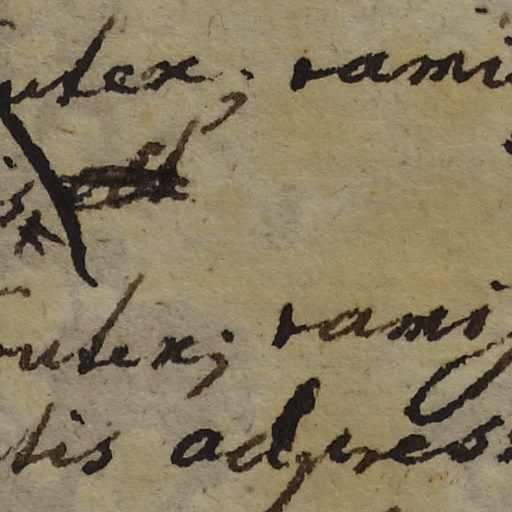 utex; rami
is
rutex; ramis
tis adpress